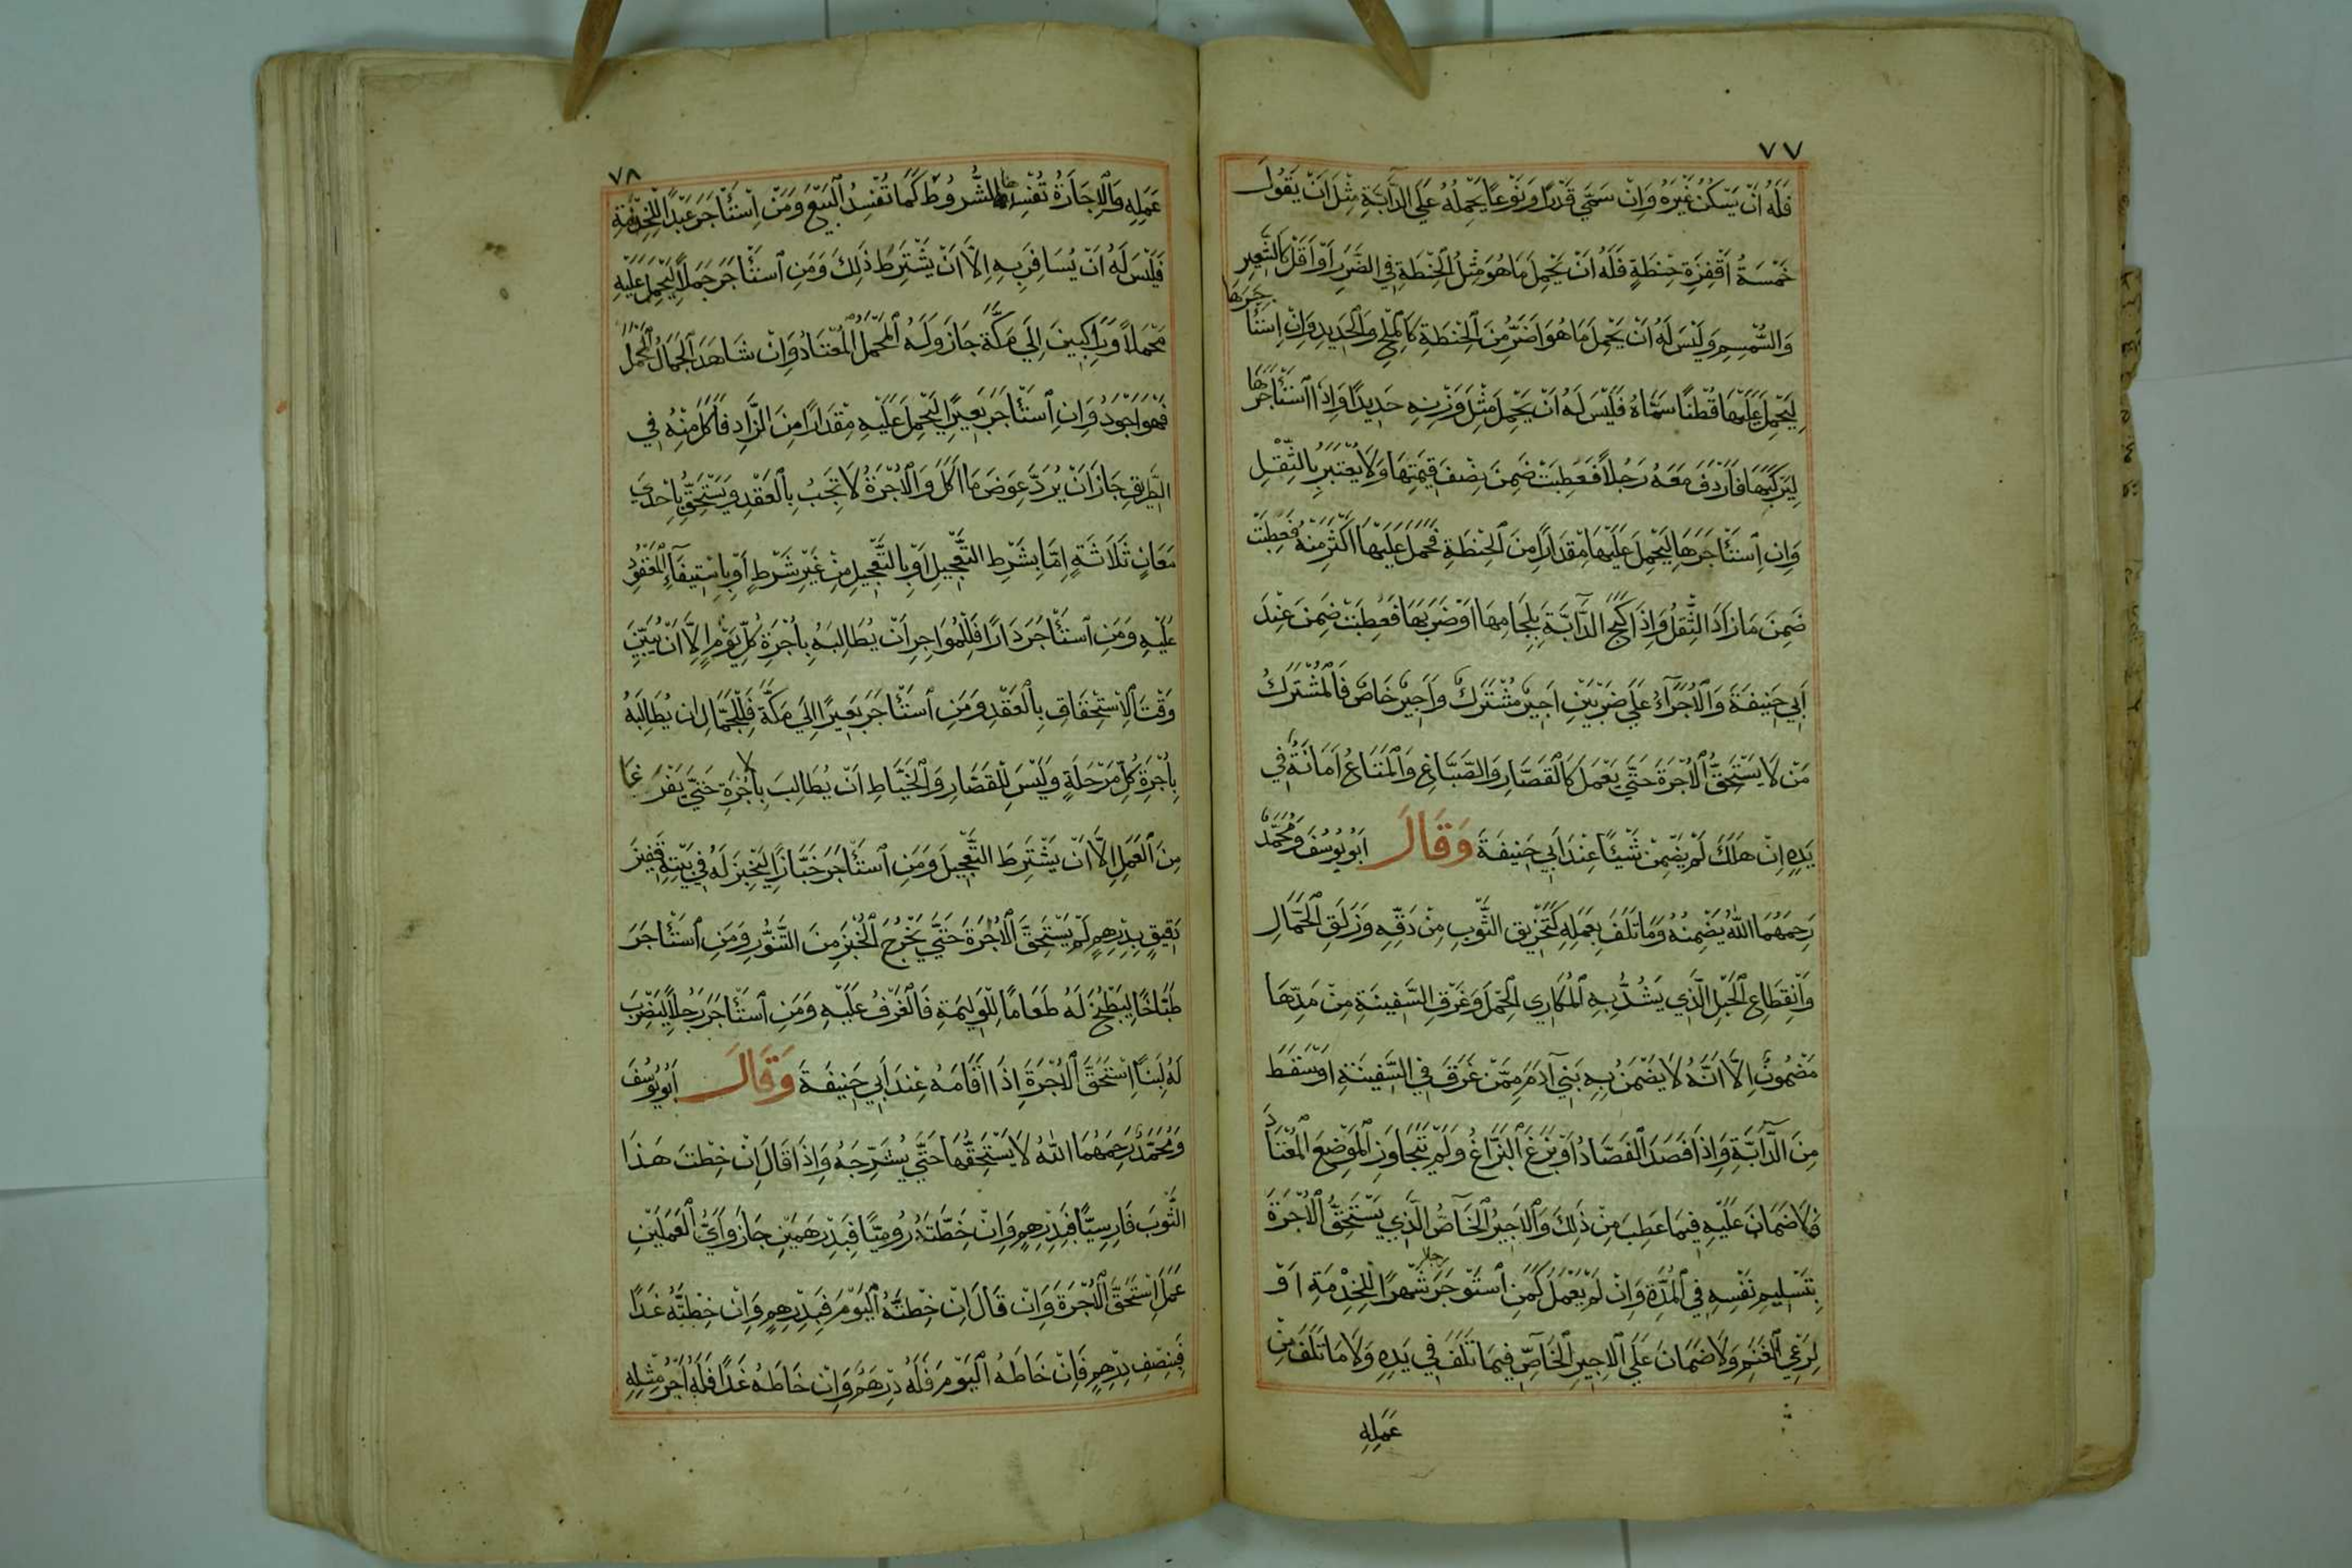 ٧٧
فَلَهُ اَنْ يَسْكُنَ غَيْرَهُ وَاِنْ سَمَّي قَدْرًا وَنَوْعًا يَحْمِلُهُ عَلَي الدَّآبَّةِ مِثْلَ اَنْ يَقُولَ
خَمْسَةُ اَقْفِزَةِ حِنْطَةٍ فَلَهُ اَنْ يَحْمِلَ مَا هُوَ مِثْلُ الْحِنْطَةِ فِي الضَّرَرِ اَوْ اَقَلَّ كَالشَّعِيرِ
وَالسُّمْسِمِ وَلَيْسَ لَهُ اَنْ يَحْمِلَ مَا هُوَ اَضَرُّ مِنَ الْحِنْطَةِ كَالْمِلْحِ وَالْحَدِيدِ وَاِنْ اِسْتَأْجَرَهَا
لِيَحْمِلَ عَلَيْهَا قُطْنًا سَمَّاهُ فَلَيْسَ لَهُ اَنْ يَحْمِلَ مِثْلَ وَزْنِهِ حَدِيدًا وَاِذَا اسْتَأْجَرَهَا
لِيَرْكَبَهَا فَاَرْدَفَ مَعَهُ رَجُلاً فَعَطِبَتْ ضَمِنَ نِصْفَ قِيمَتِهَا وَلاَ يُعْتَبَرُ بِالثِّقْلِ
وَاِنِ اسْتَأْجَرَهَا لِيَحْمِلَ عَلَيْهَا مِقْدَارًا مِنَ الْحِنْطَةِ فَحَمَلَ عَلَيْهَا اَكْثَرَ مِنْهُ فَعَطِبَتْ
ضَمِنَ مَا زَادَ الثِّقَلُ وَاِذَا كَبَحَ الدَّآبَّةَ بِلِجَامِهَا اَوْ ضَرَبَهَا فَعَطِبَتْ ضَمِنَ عِنْدَ
اَبِي حَنِيفَةَ وَالْاُجَرَآءُ عَلَي ضَرْبَيْنِ اَجِيرٌ مُشْتَرَكٌ وَاَجِيرٌ خَاصٌ فَالْمُشْتَرَكُ
مَنْ لاَ يَسْتَحِقُّ الْاُجْرَةَ حَتَّي يَعْمَلَ كَالْقَصَّارِ وَالصَّبَّاغِ وَالْمَتَاعُ اَمَانَةٌ فِي
يَدِهِ اِنْ هَلَكَ لَمْ يَضْمَنْ شَيْئًا عِنْدَ اَبِي حَنِيفَةَ وَقَالَ اَبُو يُوسُفَ وَمُحَمَّدٌ
رَحِمَهُمَا اللهُ يَضْمَنُهُ وَمَا تَلَفَ بِعَمَلِهِ كَتَخْرِيقِ الثَّوْبِ مِنْ دَقِّهِ وَزَلَقِ الْحَمَّالِ
وَانْقِطَاعِ الْحَبْلِ الَّذِي يَشُدُّ بِهِ الْمُكَارِي الْحِمْلَ وَغَرْقِ السَّفِينَةِ مِنْ مَدِّهَا
مَضْمُونٌ اِلَّا اَنَّهُ لاَ يَضْمَنُ بِهِ بَنِي آدَمَ مِمَّنْ غَرَقَ فِي السَّفِينَةِ اَوْ سَقَطَ
مِنَ الدَّآبَّةِ وَاِذَا فَصَدَ الْفَصَّادُ اَوْ بَزَغَ الْبَزَّاغُ وَلَمْ يَتَجَاوَزِ الْمَوْضِعَ الْمُعْتَادَ
فَلاَ ضَمَانَ عَلَيْهِ فِيمَا عَطِبَ مِنْ ذَلِكَ وَالْاَجِيرُ الْخَاصُّ الَّذِي يَسْتَحِقُّ الْاُجْرَةَ
بِتَسْلِيمِ نَفْسِهِ فِي الْمُدَّةِ وَاِنْ لَمْ يَعْمَلْ كَمَنِ اسْتَوْجَرَ رجلا شَهْرًا لِلْخِدْمَةِ اَوْ
لِرَعْيِ الْغَنَمِ وَلاَ ضَمَانَ عَلَي الْاَجِيرِ الْخَاصِّ فِيمَا تَلَفَ فِي يَدِهِ وَلاَ مَا تَلَفَ مِنْ
عَمَلِهِ
٧٨
عَمَلِهِ وَالْاِجَارَةُ تُفْسِدُهَا الشُّرُوطُ كَمَا تُفْسِدُ الْبَيْعَ وَمَنْ اِسْتَأْجَرَ عَبْدًا لِلْخِدْمَةِ
فَلَيْسَ لَهُ اَنْ يُسَافِرَ بِهِ اِلاَّ اَنْ يَشْتَرِطَ ذَلِكَ وَمَنِ اسْتَأْجَرَ جَمَلاً لِيَحْمِلَ عَلَيْهِ
مَحْمِلاً وَرَاكِبَيْنِ اِلَي مَكَّةَ جَازَ وَلَهُ الْمَحْمِلُ الْمُعْتَادُ وَاِنْ شَاهَدَ الْجَمَّالُ الْمَحْمِلَ
فَهُوَ اَجْوَدُ وَاِنِ اسْتَأْجَرَ بَعِيرًا لِيَحْمِلَ عَلَيْهِ مِقْدَارًا مِنَ الزَّادِ فَاَكَلَ مِنْهُ فِي
الطَّرِيقِ جَازَ اَنْ يُرَدَّ عِوَضَ مَا اَكَلَ وَالْاُجْرَةُ لاَ تَجِبُ بِالْعَقْدِ وَيَسْتَحِقُّ بِاِحْدَي
مَعَانٍ ثَلَاثَةٍ اِمَّا بِشَرْطِ التَّعْجِيلِ اَوْ بِالتَّعْجِيلِ مِنْ غَيْرِ شَرْطٍ اَوْ بِاسْتِيفَآءِ الْمَعْقُودِ
عَلَيْهِ وَمَنِ اسْتَأْجَرَ دَارًا فَلِلْمُوَاجِرِ اَنْ يُطَالِبَهُ بِاُجْرَةِ كُلِّ يَوْمٍ اِلاَّ اَنْ يُبَيِّنَ
وَقْتَ الْاِسْتِحْقَاقِ بِالْعَقْدِ وَمَنِ اسْتَأْجَرَ بَعِيرًا اِلَي مَكَّةَ فَلِلْجَمَّالِ ان يُطَالِبَهُ
بِاُجْرَةِ كُلِّ مَرْحَلَةٍ وَلَيْسَ لِلْقَصَّارِ وَالْخَيَّاطِ اَنْ يُطَالِبَ بِاُجْرَةٍ حَتَّي يَفْرَغَا
مِنَ الْعَمَلِ اِلاَّ اَنْ يَشْتَرِطَ التَّعْجِيلَ وَمَنِ اسْتَأْجَرَ خَبَّازًا لِيَخْبِزَ لَهُ فِي بَيْتِهِ قَفِيزَ
دَقِيقٍ بِدِرْهَمٍ لَمْ يَسْتَحِقَّ الْاُجْرَةَ حَتَّي يَخْرُجَ الْخُبْزُ مِنَ التَّنُّورِ وَمَنِ اسْتَأْجَرَ
طَبَّاخًا لِيَطْبُخَ لَهُ طَعَامًا لِلْوَلِيمَةِ فَالْغَرْفُ عَلَيْهِ وَمَنِ اسْتَأْجَرَ رَجُلاً لِيَضْرِبَ
لَهُ لَبِنًا اِسْتَحَقَّ الْاُجْرَةَ اِذَا اَقَامَهُ عِنْدَ اَبِي حَنِيفَةَ وَقَالَ اَبُو يُوسُفَ
وَمُحَمَّدٌ رَحِمَهُمَا اللهُ لاَ يَسْتَحِقُّهَا حَتَّي يُشَرِّجَهُ وَاِذَا قَالَ اِنْ خِطْتَ هَذَا
الثَّوْبَ فَارِسِيًّا فَبِدِرْهَمٍ وَاِنْ خِطْتَهُ رُومِيًّا فَبِدِرْهَمَيْنِ جَازَ وَاَيُّ الْعَمَلَيْنِ
عَمَلَ اسْتَحَقَّ الْاُجْرَةَ وَاِنْ قَالَ اِنْ خِطْتَهُ الْيَوْمَ فَبِدِرْهَمٍ وَاِنْ خِطْتَهُ غَدًا
فَبِنِصْفِ دِرْهَمٍ فَاِنْ خَاطَهُ الْيَوْمَ فَلَهُ دِرْهَمٌ وَاِنْ خَاطَهُ غَدًا فَلَهُ اَجْرُ مِثْلِهِ